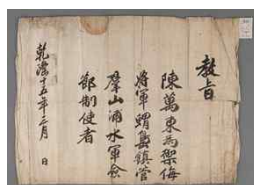 教旨
陳萬東為禦侮
將軍蝟島鎮管
羣山浦水軍僉
節制使者
乾隆十五年二月　日